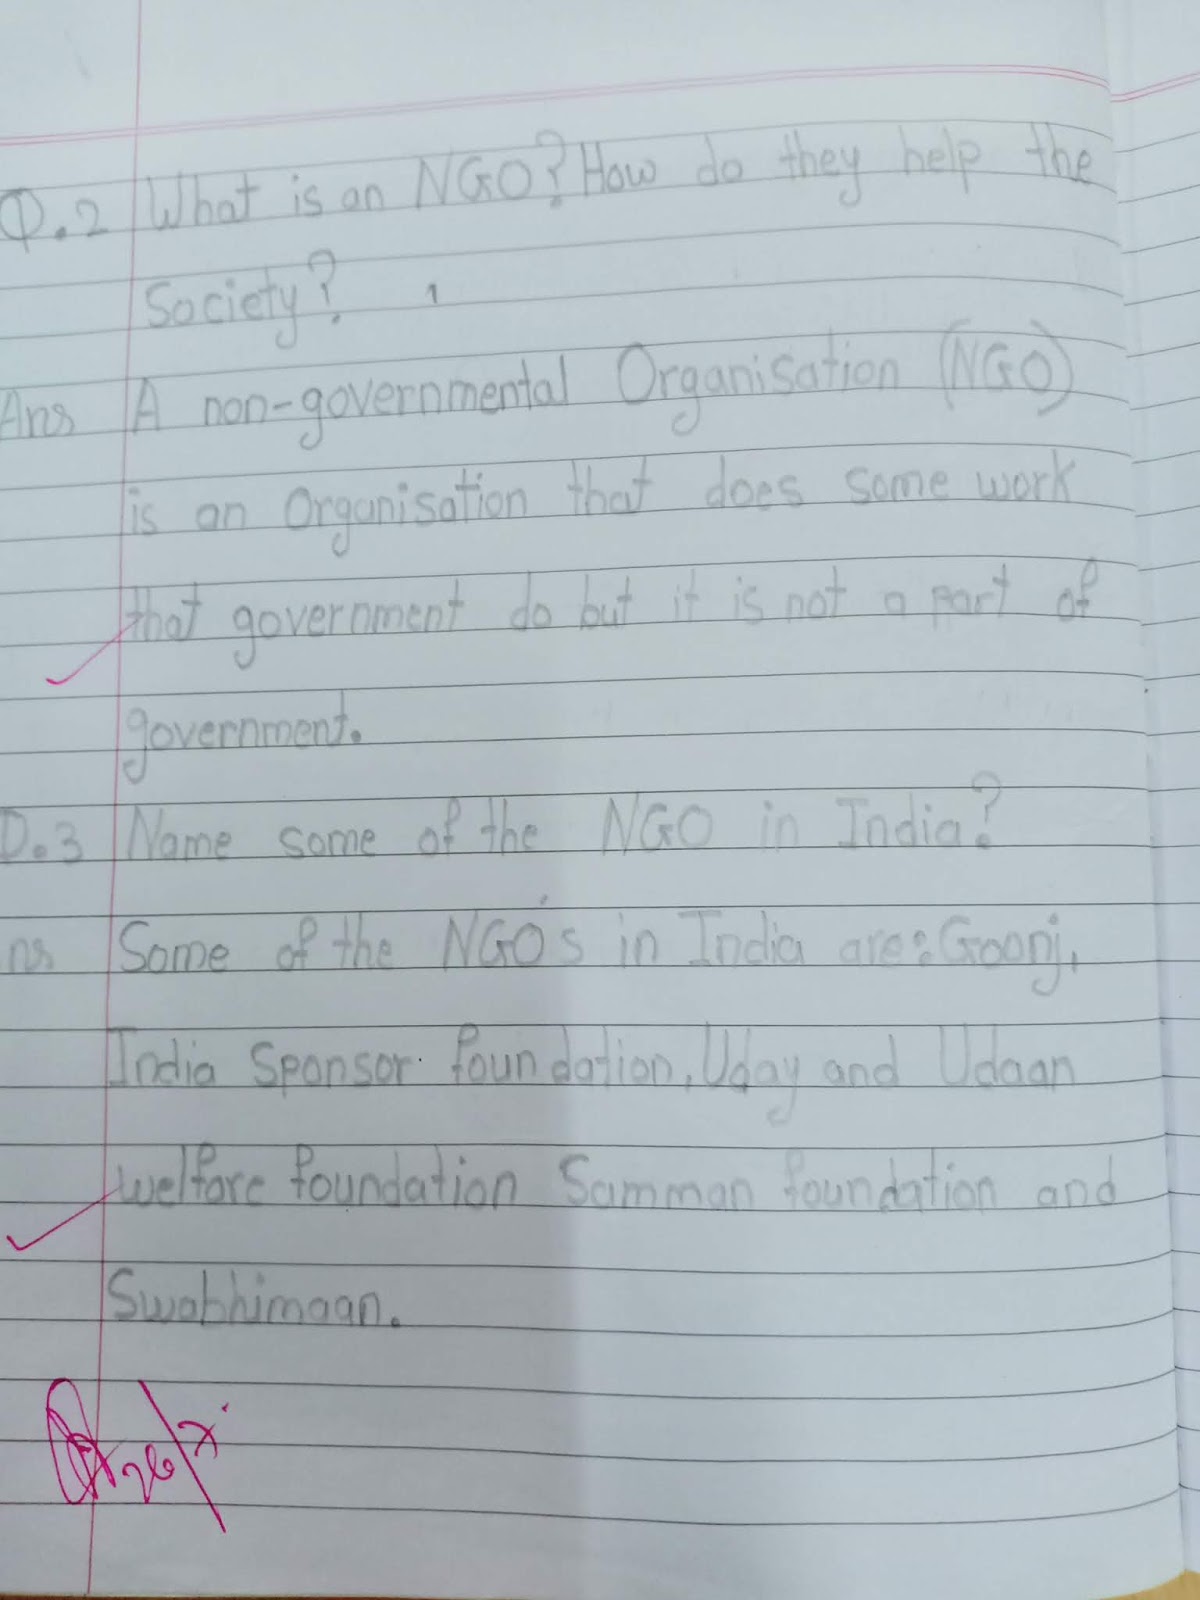 Q.2 What is an NGO? How do they help the
Society?
Ans A non-governmental Organisation (NGO)
is an Organisation that does some work
that government do but it is not a part of
government.
Q.3 Name some of the NGO in India?
ns Some of the NGO's in India are: Goonj,
India Sponsor foundation, Uday and Udaan
welfare foundation Samman foundation and
Swabhimaan.